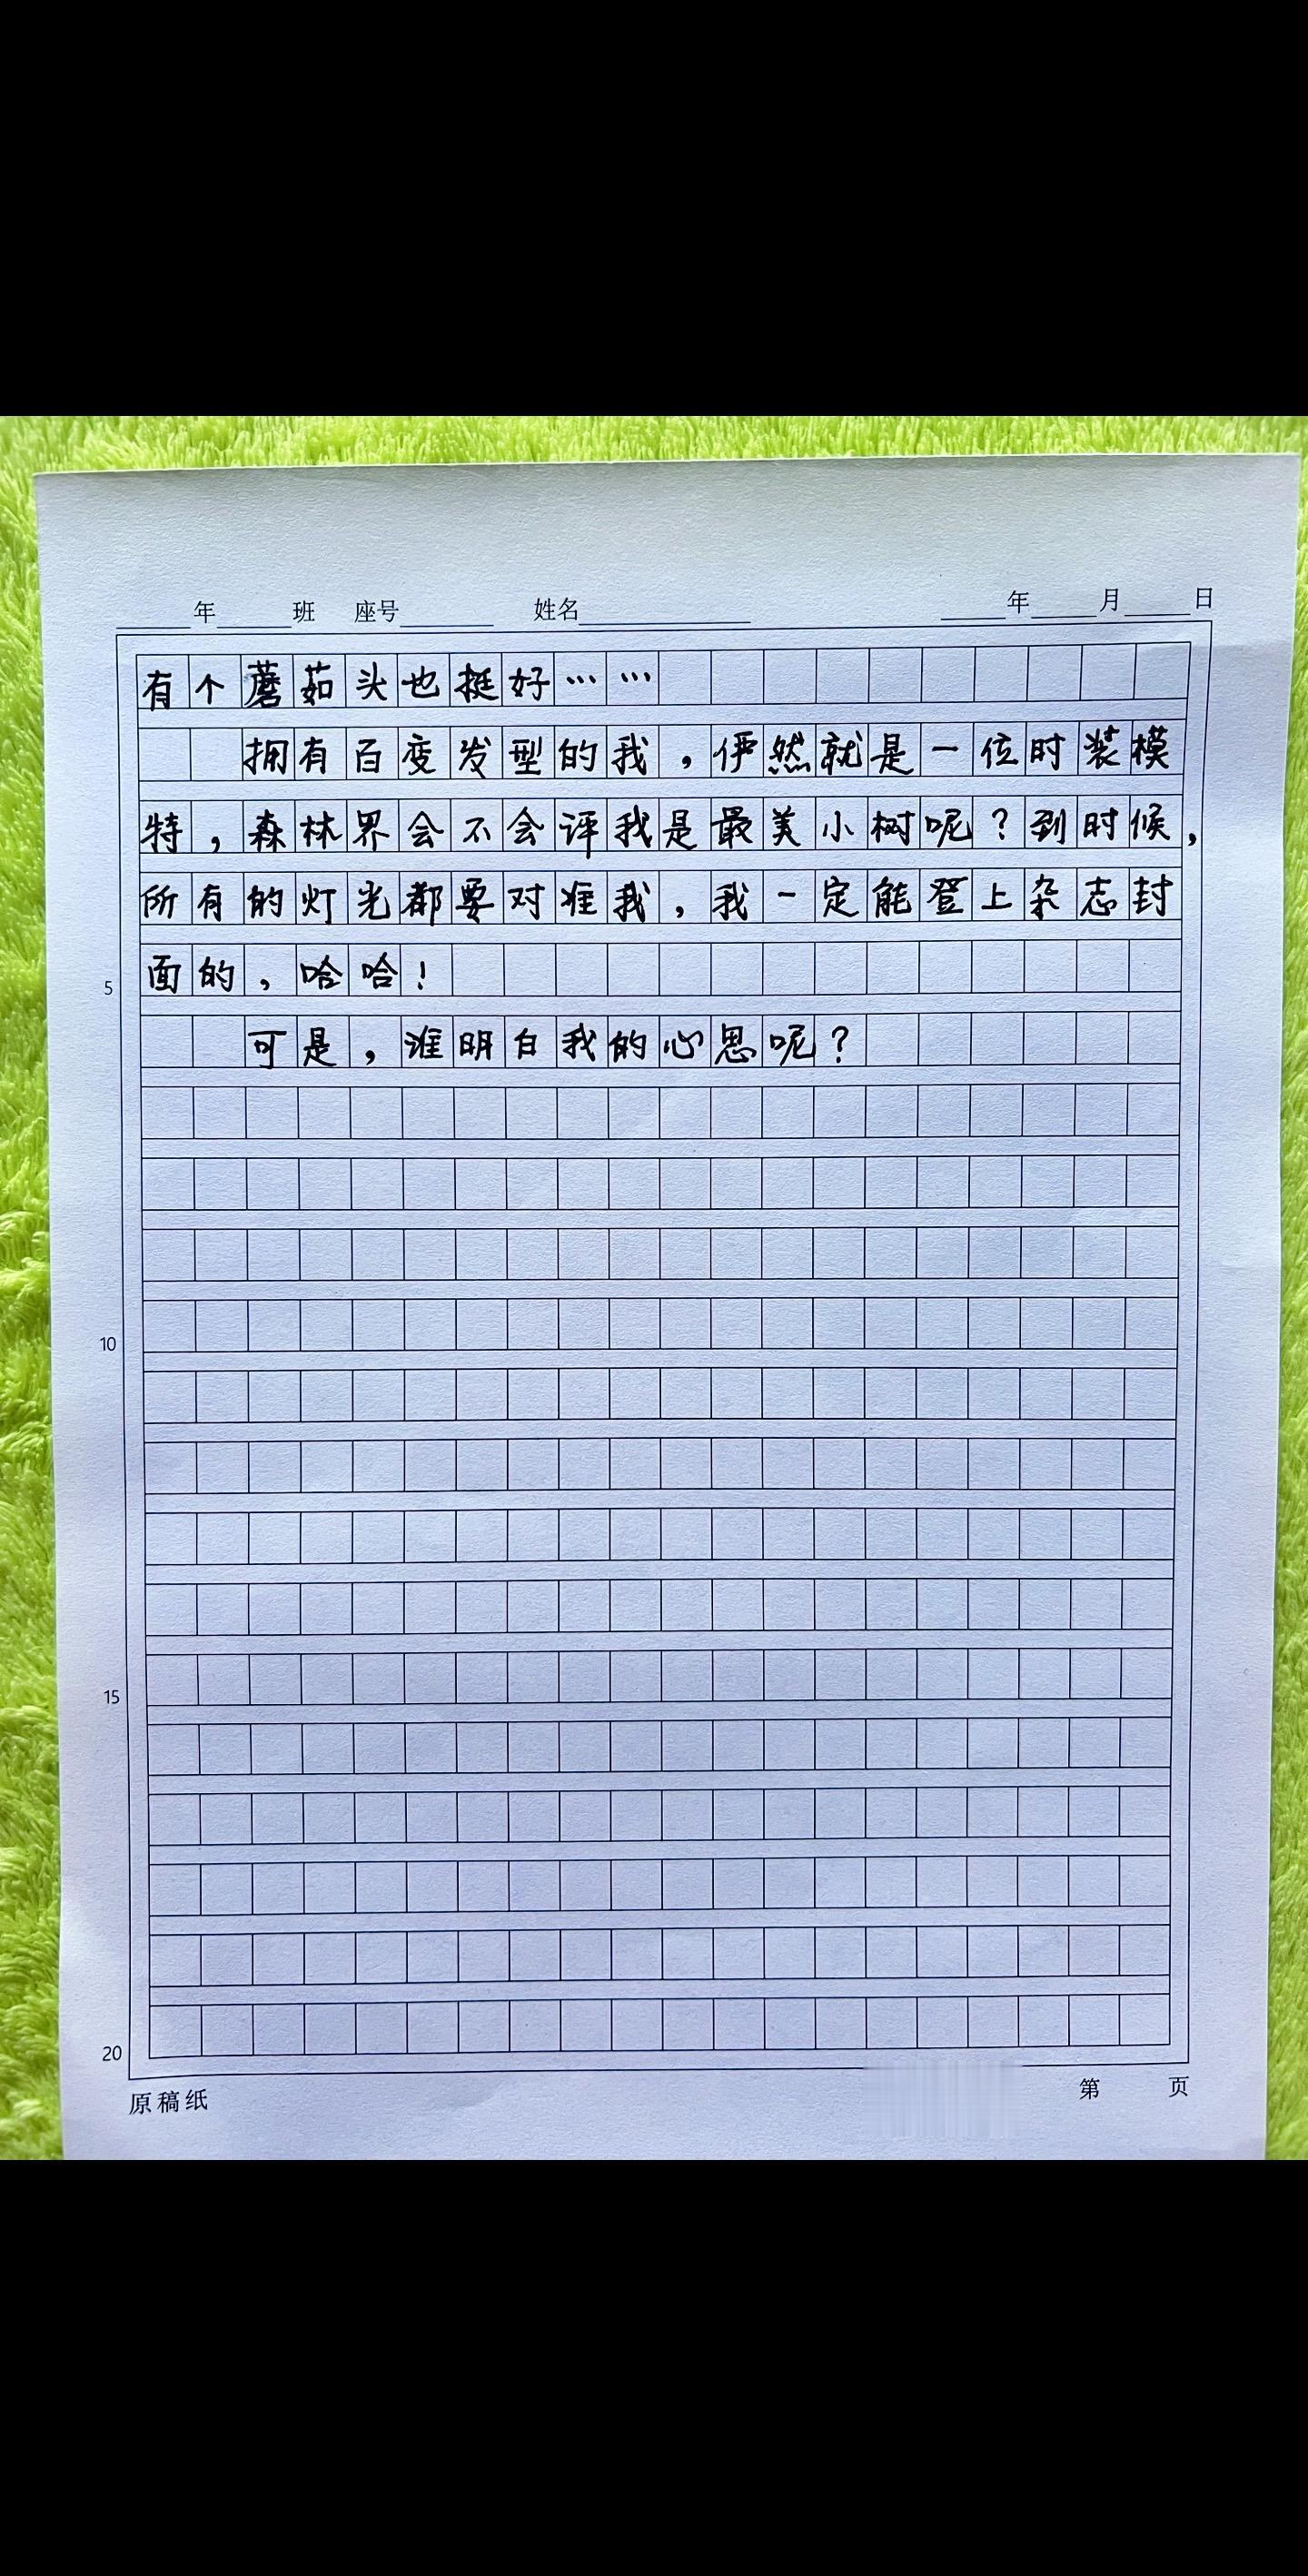 年 班 座号 姓名 年 月 日
有个蘑茹头也挺好……
拥有百变发型的我，俨然就是一位时装模
特，森林界会不会评我是最美小树呢？到时候，
所有的灯光都要对准我，我一定能登上杂志封
面的，哈哈！
5
可是，谁明白我的心思呢？
10
15
20
原稿纸 第 页